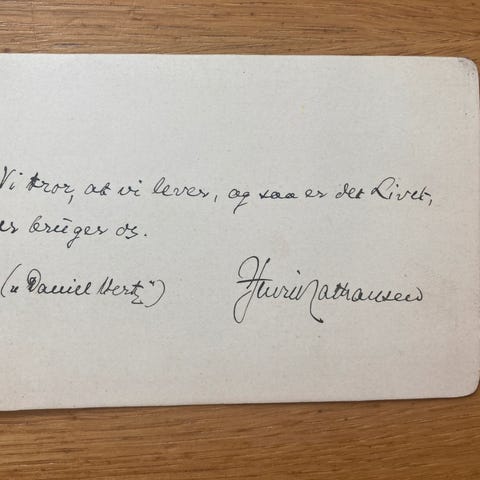 Vi tror, at vi lever, og saa er det Livet,
er bruger os.
("Daniel Hertz")
Henri Nathansen